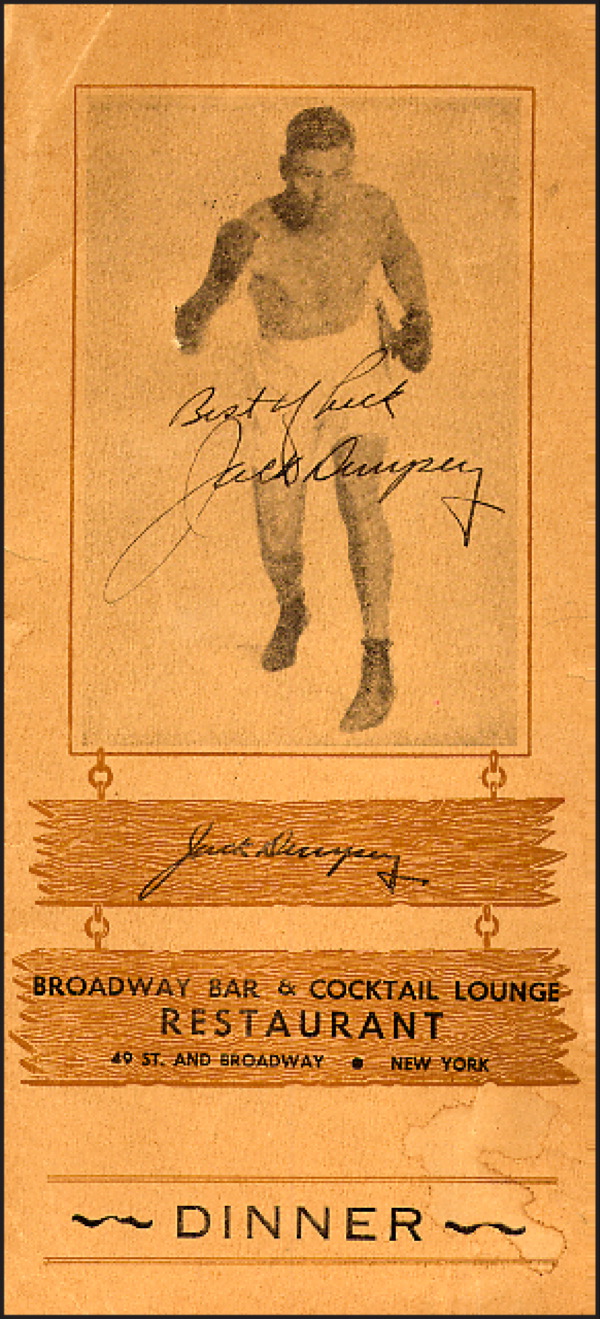 Best of luck
Jack Dempsey
Jack Dempsey
BROADWAY BAR & COCKTAIL LOUNGE
RESTAURANT
49 ST. AND BROADWAY • NEW YORK
DINNER